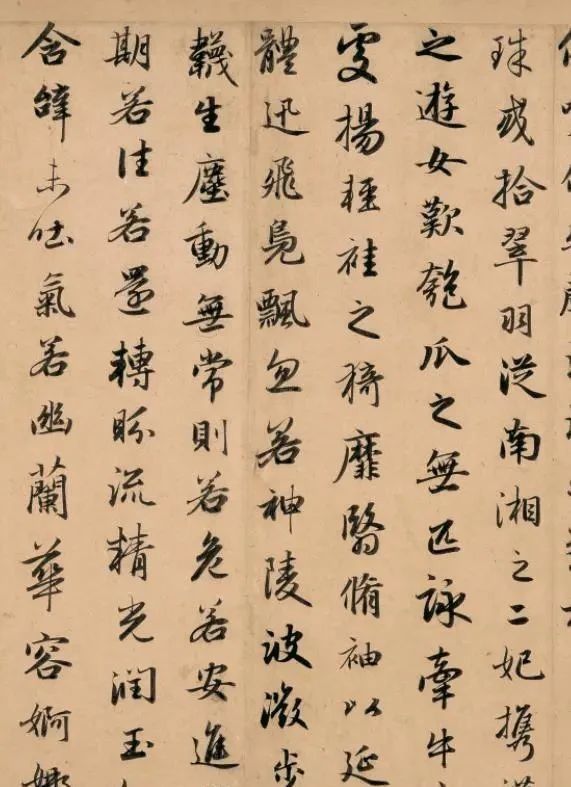 珠或拾翠羽從南湘之二妃攜
之遊女歎匏瓜之無匹詠牽牛
雯揚輕袿之猗靡翳脩袖以延
體迅飛鳧飄忽若神陵波微步
韈生塵動無常則若危若安進
期若往若還轉眄流精光潤玉
含辭未吐氣若幽蘭華容婀